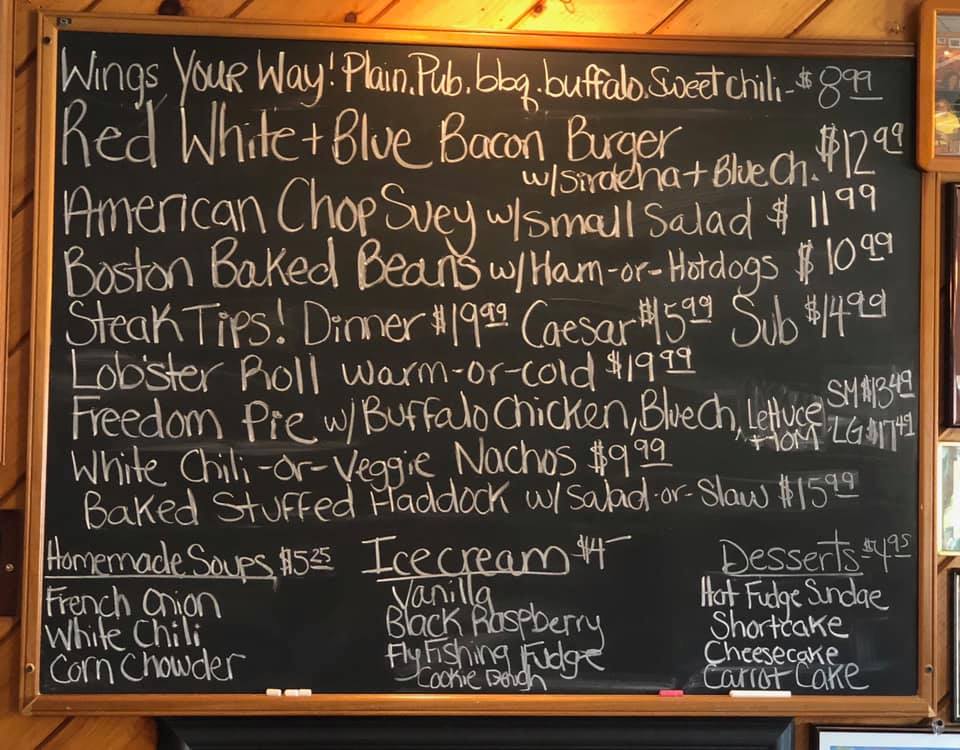 Wings Your Way! Plain, Pub, bbq, buffalo, Sweet chili - $8.99
Red White + Blue Bacon Burger $12.99
w/Siracha + Blue Ch.
American Chop Suey w/small Salad $11.99
Boston Baked Beans w/Ham-or-Hotdogs $10.99
Steak Tips! Dinner $19.99 Caesar $15.99 Sub $14.99
Lobster Roll warm-or-cold $19.99
Freedom Pie w/Buffalo Chicken, Bluech, Lettuce SM $13.49
+ Tom LG $17.49
White Chili -or- Veggie Nachos $9.99
Baked Stuffed Haddock w/Salad-or-Slaw $15.99
Homemade Soups $5.25
French Onion
White Chili
Corn Chowder
Icecream $4-
Vanilla
Black Raspberry
Fly Fishing Fudge
Cookie Dough
Desserts $4.95
Hot Fudge Sundae
Shortcake
Cheesecake
Carrot Cake